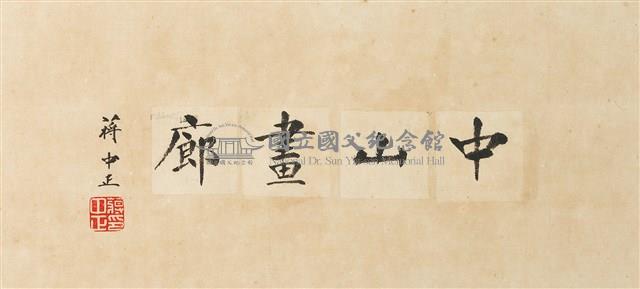 中山畫廊
蔣中正
國立國父紀念館
National Dr. Sun Yat-sen Memorial Hall